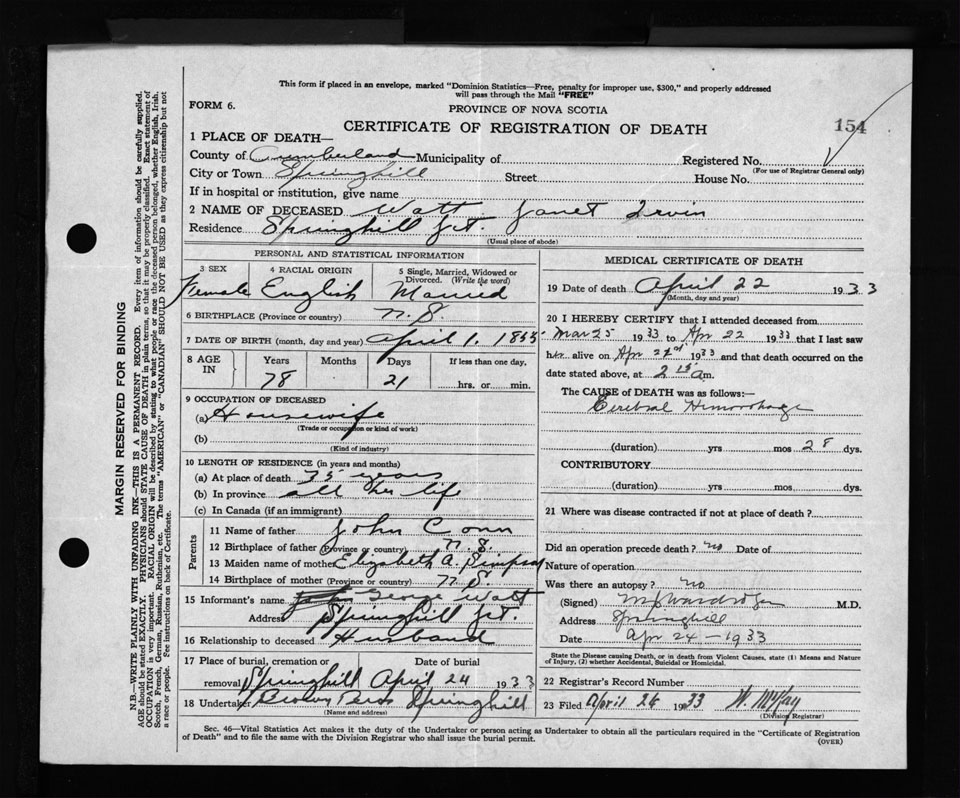 This form if placed in an envelope, marked "Dominion Statistics—Free, penalty for improper use, $300," and properly addressed
will pass through the Mail "FREE"
FORM 6.
PROVINCE OF NOVA SCOTIA
CERTIFICATE OF REGISTRATION OF DEATH
154
1 PLACE OF DEATH—
County of Cumberland Municipality of Registered No.
(For use of Registrar General only)
City or Town Springhill Street House No.
If in hospital or institution, give name
2 NAME OF DECEASED Watt Janet Irvin
Residence Springhill Jct.
(Usual place of abode)
PERSONAL AND STATISTICAL INFORMATION
3 SEX 4 RACIAL ORIGIN 5 Single, Married, Widowed or Divorced. (Write the word)
Female English Married
6 BIRTHPLACE (Province or country) N.S.
7 DATE OF BIRTH (month, day and year) April 1, 1855
8 AGE IN Years Months Days If less than one day,
78 21 hrs. or min.
9 OCCUPATION OF DECEASED
(a) Housewife
(Trade or occupation or kind of work)
(b)
(Kind of industry)
10 LENGTH OF RESIDENCE (in years and months)
(a) At place of death 75 years
(b) In province all her life
(c) In Canada (if an immigrant)
Parents
11 Name of father John Conn
12 Birthplace of father (Province or country) N.S.
13 Maiden name of mother Elizabeth A. Simpson
14 Birthplace of mother (Province or country) N.S.
15 Informant's name George Watt
Address Springhill Jct.
16 Relationship to deceased Husband
17 Place of burial, cremation or removal Date of burial
Springhill April 24 1933
18 Undertaker Brown Bros Springhill
(Name and address)
MEDICAL CERTIFICATE OF DEATH
19 Date of death April 22 1933
(Month, day and year)
20 I HEREBY CERTIFY that I attended deceased from
Mar 25 1933 to Apr 22 1933 that I last saw
her alive on Apr 22nd 1933 and that death occurred on the
date stated above, at 2 15 a m.
The CAUSE of DEATH was as follows:—
Cerebral Hemorrhage
(duration) yrs mos 28 dys.
CONTRIBUTORY
(duration) yrs mos dys.
21 Where was disease contracted if not at place of death?
Did an operation precede death? no Date of
Nature of operation
Was there an autopsy? no
(Signed) M.D.
Address Springhill
Date Apr 24—1933
State the Disease causing Death, or in death from Violent Causes, state (1) Means and Nature
of Injury, (2) whether Accidental, Suicidal or Homicidal.
22 Registrar's Record Number
23 Filed April 24 1933 W. McKay
(Division Registrar)
Sec. 46—Vital Statistics Act makes it the duty of the Undertaker or person acting as Undertaker to obtain all the particulars required in the "Certificate of Registration
of Death" and to file the same with the Division Registrar who shall issue the burial permit.
(OVER)
MARGIN RESERVED FOR BINDING
N.B.—WRITE PLAINLY WITH UNFADING INK—THIS IS A PERMANENT RECORD. Every item of information should be carefully supplied.
AGE should be stated EXACTLY. PHYSICIANS should STATE CAUSE OF DEATH in plain terms, so that it may be properly classified. Exact statement of
OCCUPATION is very important. RACIAL ORIGIN will be described by stating to what people or race the deceased person belonged, whether English, Irish,
Scotch, French, German, Russian, Ruthenian, etc. The terms "AMERICAN" or "CANADIAN" SHOULD NOT BE USED as they express citizenship but not
a race or people. See instructions on back of Certificate.